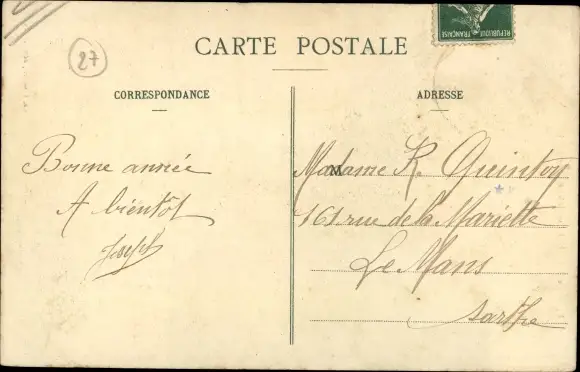 27
CARTE POSTALE
REPUBLIQUE FRANÇAISE
CORRESPONDANCE
ADRESSE
Bonne année
A bientôt
Joseph
Madame R. Quintoy
161 rue de la Mariette
Le Mans
Sarthe